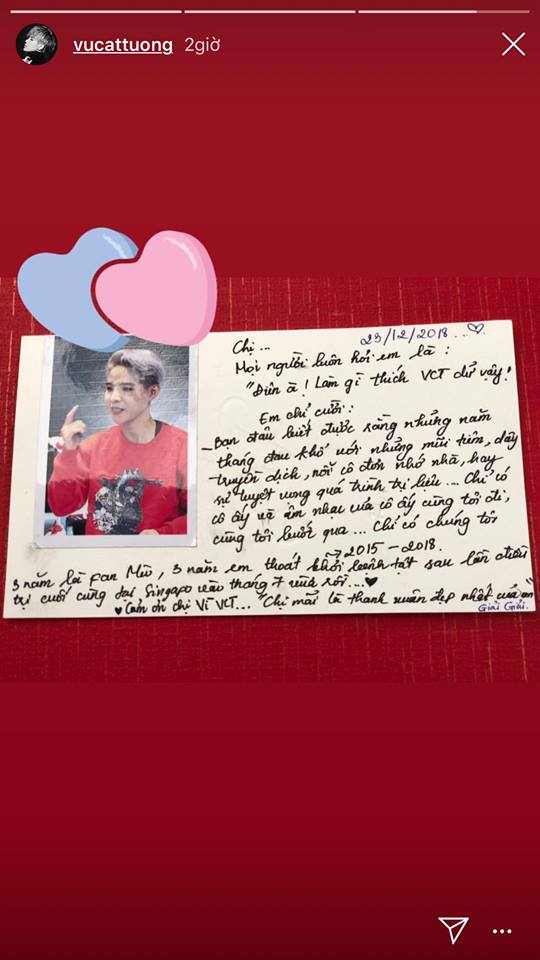 vucattuong 2giờ
23/12/2018...
Chị...
Mọi người luôn hỏi em là :
"Điên à ! Làm gì thích VCT dữ vậy!
Em chỉ cười :
- Bạn đâu biết được rằng những năm
tháng đau khổ với những mũi tiêm, dây
truyền dịch, nỗi cô đơn nhớ nhà, hay
sự tuyệt vọng quá trình trị liệu... Chỉ có
cô ấy và âm nhạc của cô ấy cùng tôi đi,
cùng tôi bước qua... Chỉ có chúng tôi
2015 - 2018.
3 năm là fan Mều, 3 năm em thoát khỏi bệnh tật sau lần điều
trị cuối cùng tại Singapo vào tháng 7 vừa rồi...
Cảm ơn chị Vì VCT... "Chị mãi là thanh xuân đẹp nhất của em
Giai Giai.